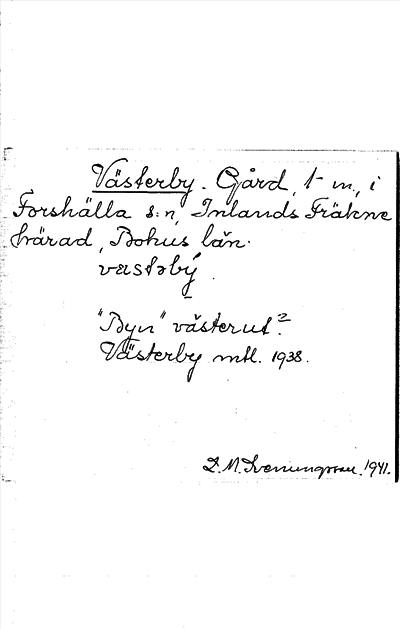 Västerby. Gård, 1 m., i
Forshälla s:n, Inlands Fräkne
härad, Bohus län.
västəbý.
"Byn" västerut?
Västerby mtl. 1938.
D. M. Svenungsson. 1941.